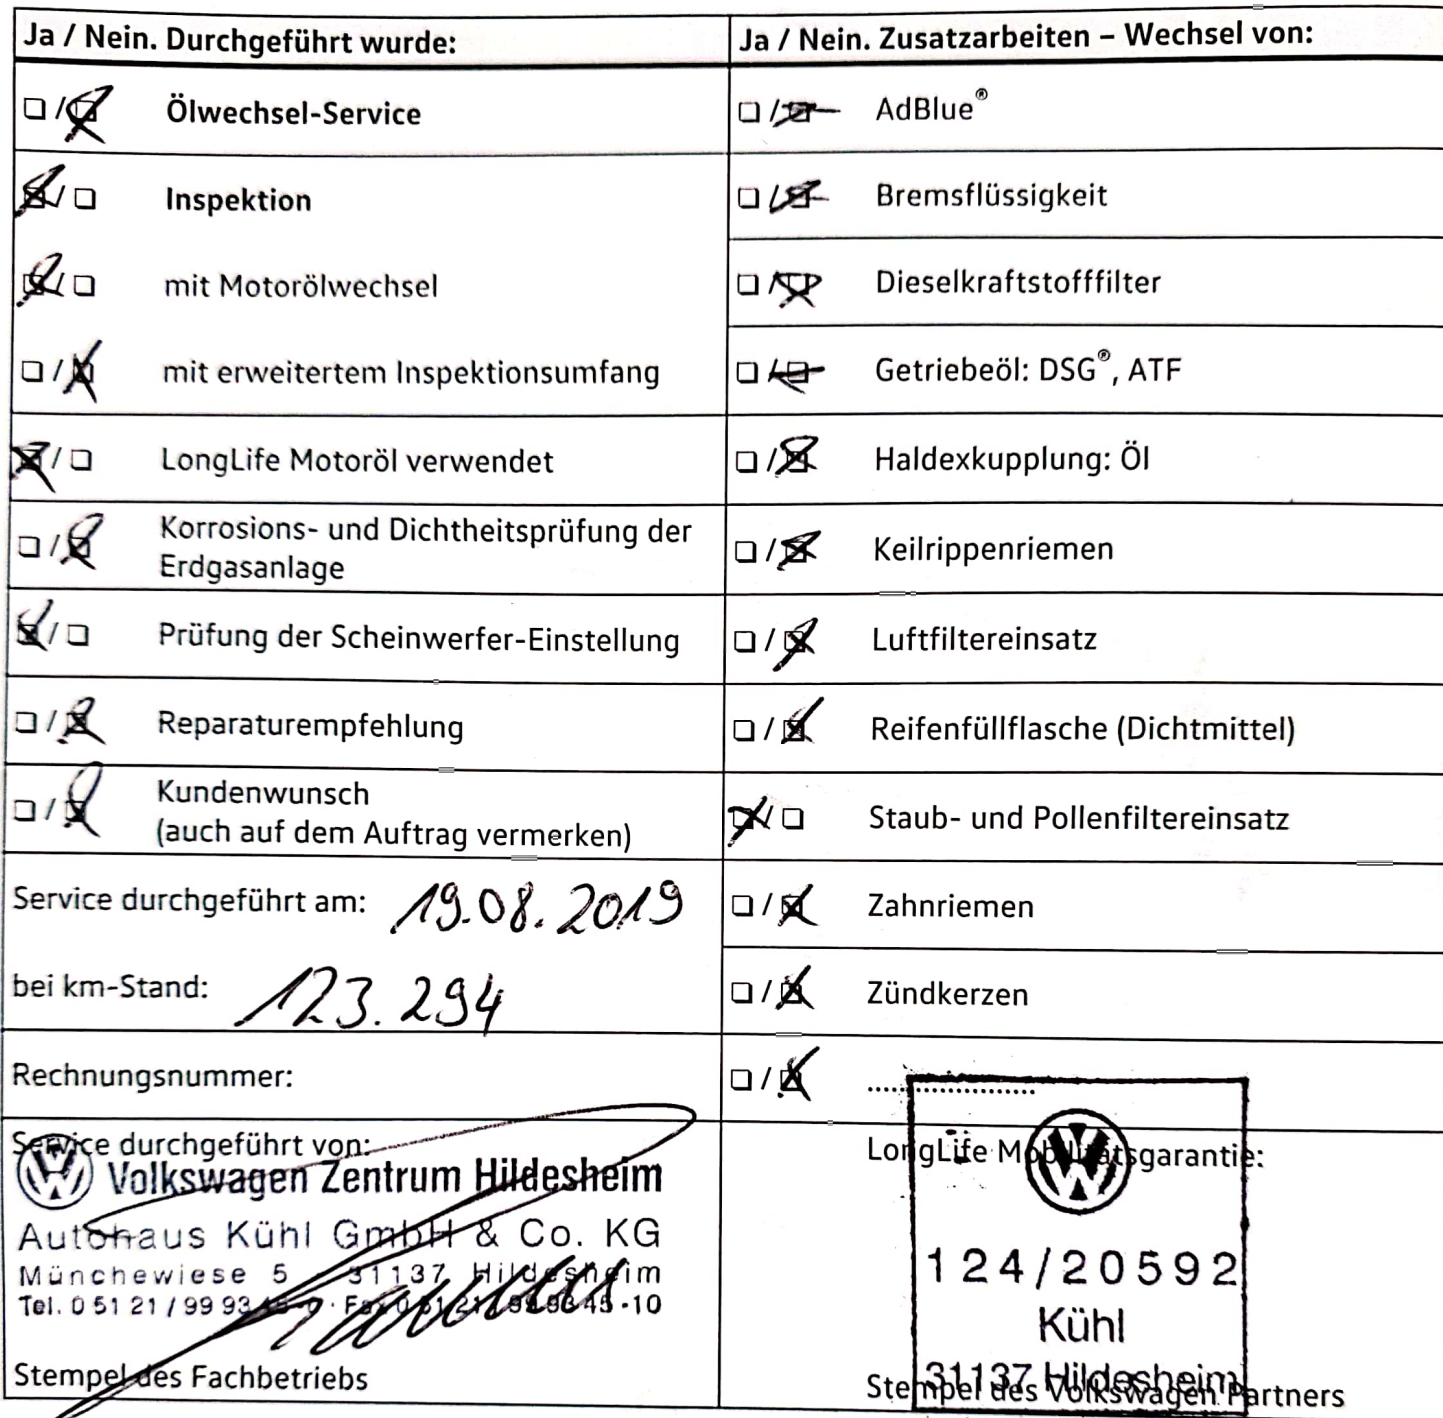 Ja / Nein. Durchgeführt wurde:
Ölwechsel-Service
Inspektion
mit Motorölwechsel
mit erweitertem Inspektionsumfang
LongLife Motoröl verwendet
Korrosions- und Dichtheitsprüfung der
Erdgasanlage
Prüfung der Scheinwerfer-Einstellung
Reparaturempfehlung
Kundenwunsch
(auch auf dem Auftrag vermerken)
Service durchgeführt am: 19.08.2019
bei km-Stand: 123.294
Rechnungsnummer:
Service durchgeführt von:
Volkswagen Zentrum Hildesheim
Autohaus Kühl GmbH & Co. KG
Münchewiese 5 31137 Hildesheim
Tel. 0 51 21 / 99 93 Fax 0 51 21 / 99 93 45 -10
Stempel des Fachbetriebs
Ja / Nein. Zusatzarbeiten – Wechsel von:
AdBlue®
Bremsflüssigkeit
Dieselkraftstofffilter
Getriebeöl: DSG®, ATF
Haldexkupplung: Öl
Keilrippenriemen
Luftfiltereinsatz
Reifenfüllflasche (Dichtmittel)
Staub- und Pollenfiltereinsatz
Zahnriemen
Zündkerzen
LongLife Mobilitätsgarantie:
124/20592
Kühl
31137 Hildesheim
Stempel des Volkswagen Partners